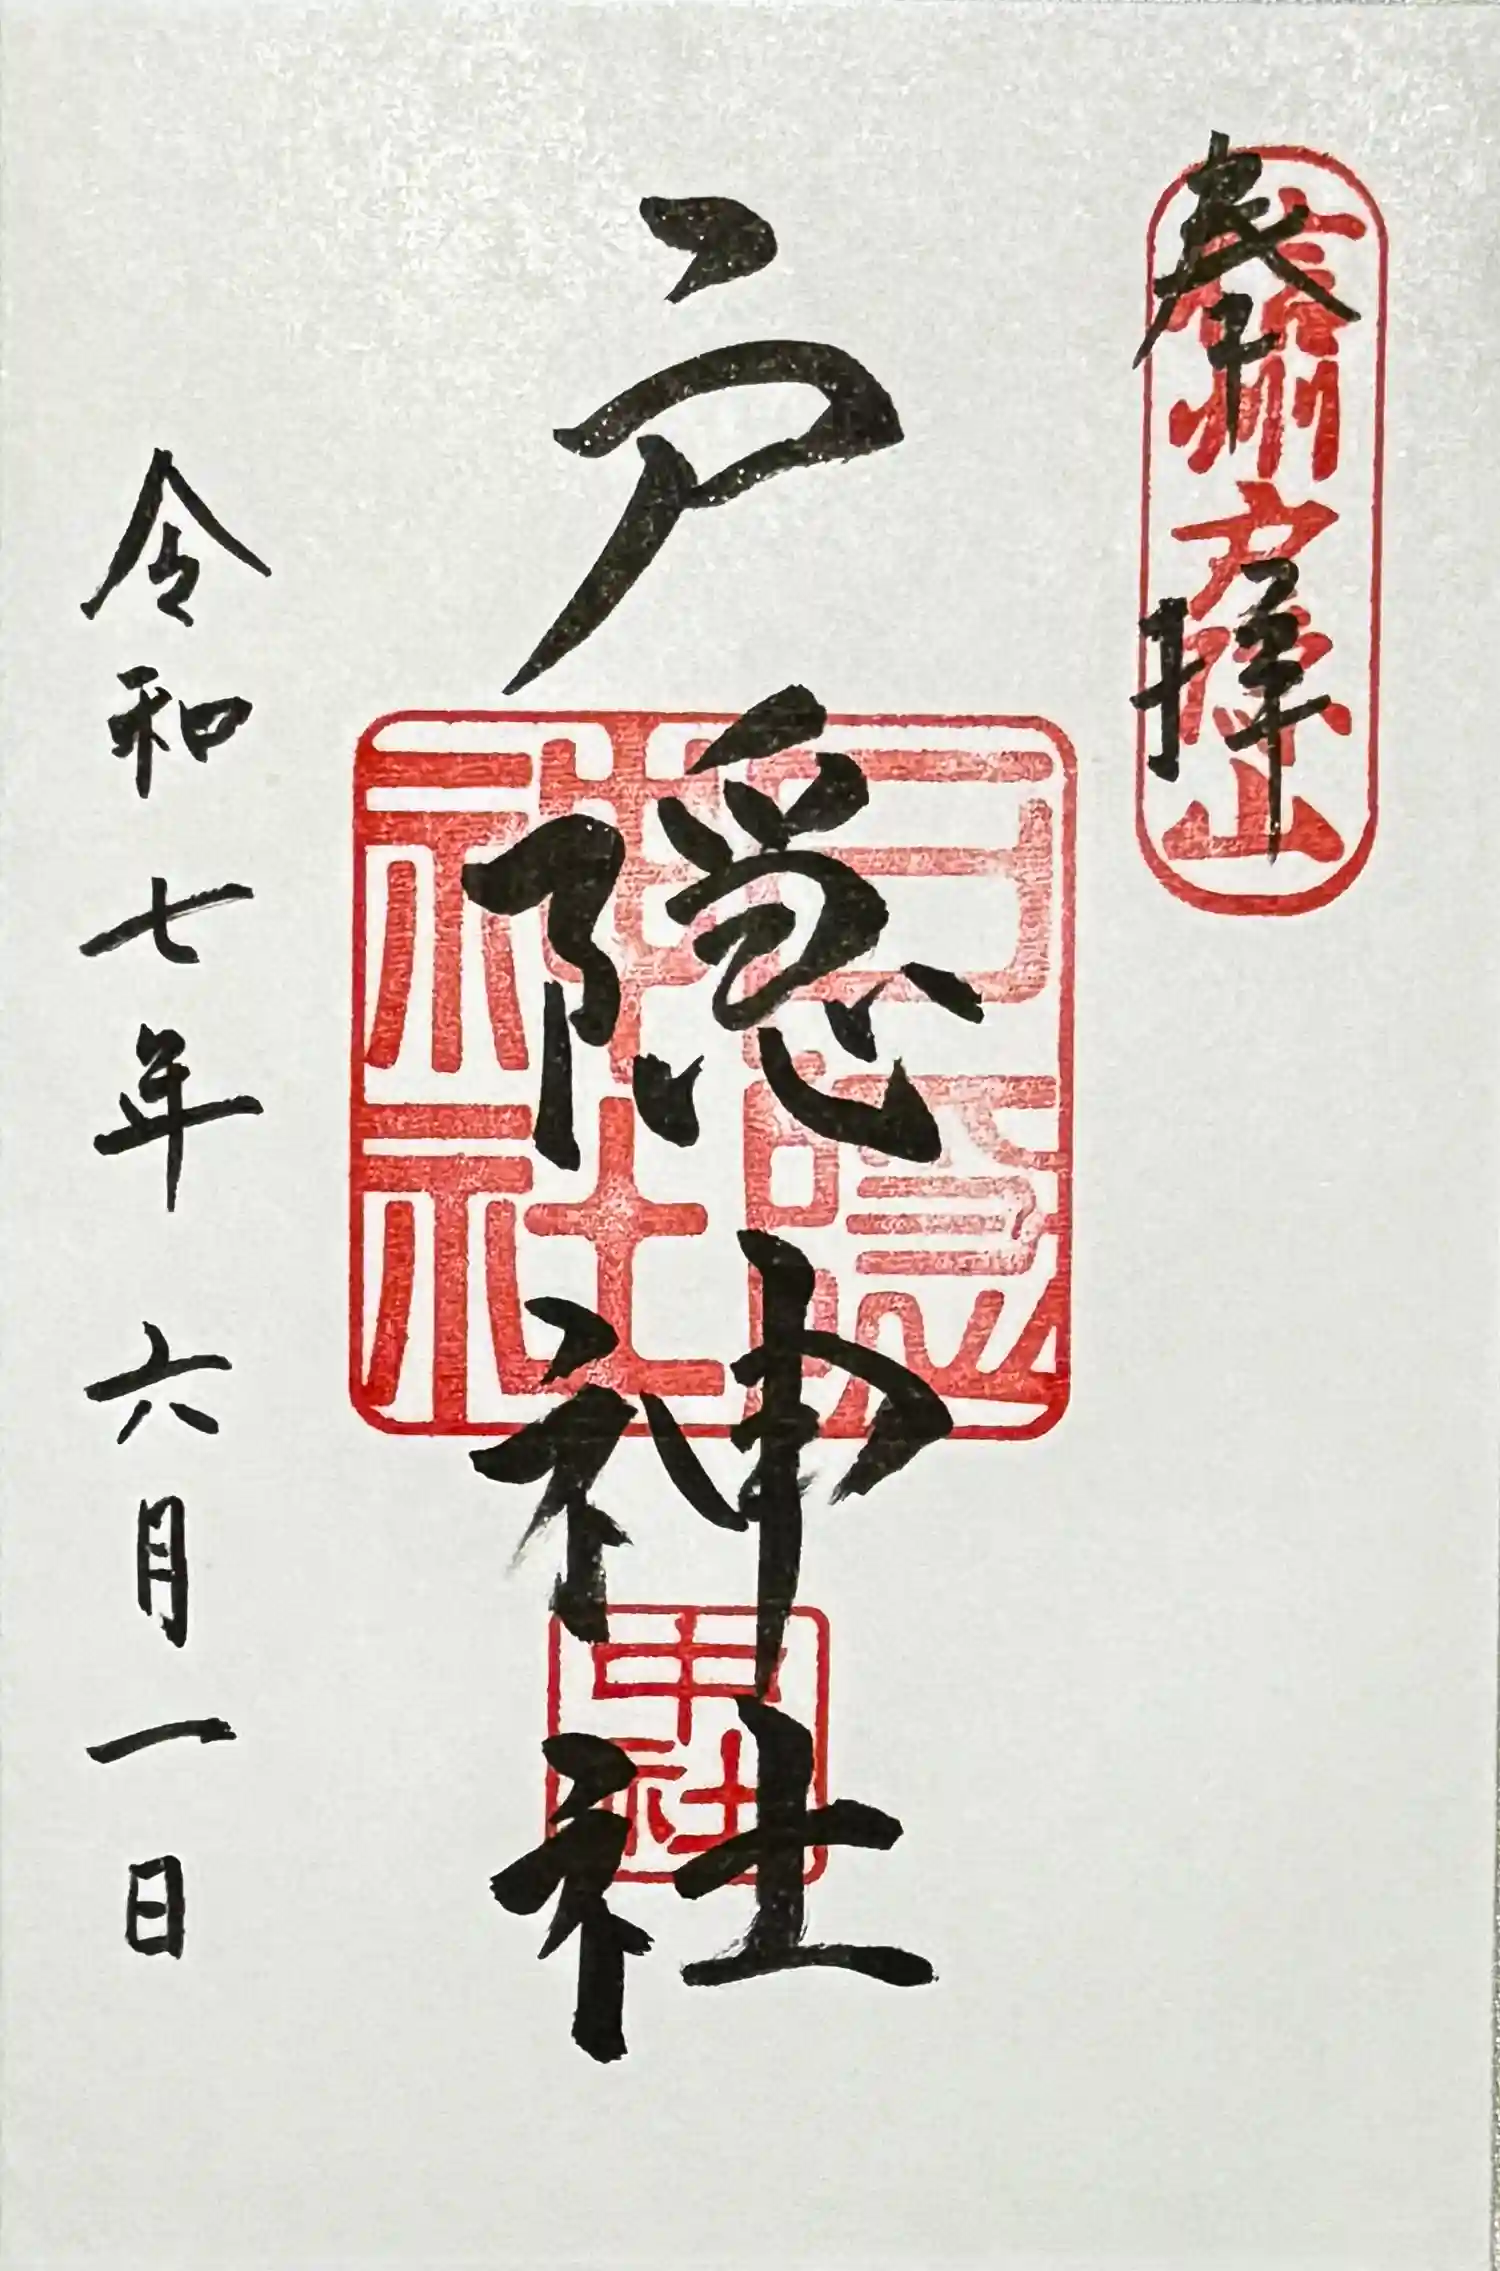 奉拝
信州戸隠山
戸隠神社
戸隠
神社
中
社
令和七年六月一日